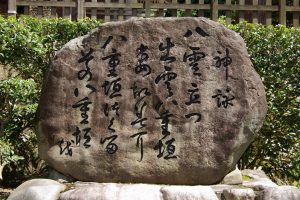 神詠
八雲立つ
出雲八重垣
妻故美尓
八重垣作る
其の八重垣